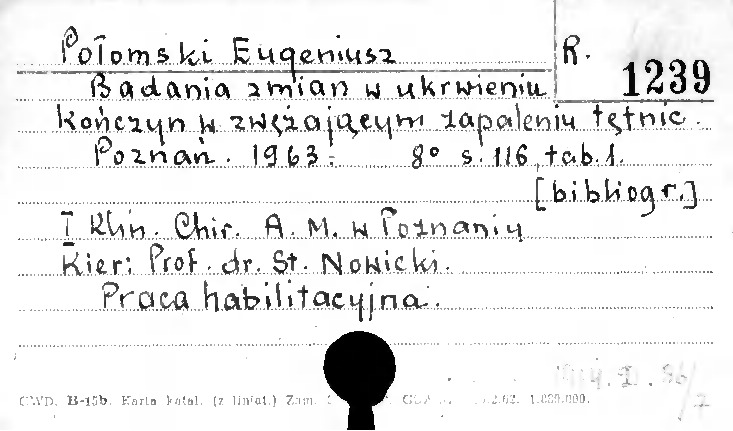 Połomski Eugeniusz
R. 1239
Badania zmian w ukrwieniu
kończyn w zwężającym zapaleniu tętnic.
Poznań. 1963. 8° s. 116, tab. 1.
[bibliogr.]
I Klin. Chir. A. M. w Poznaniu
Kier: Prof. dr. St. Nowicki.
Praca habilitacyjna.
CWD. B-15b. Karta katal. (z liniat.) Zam. 2.62. 1.000.000.